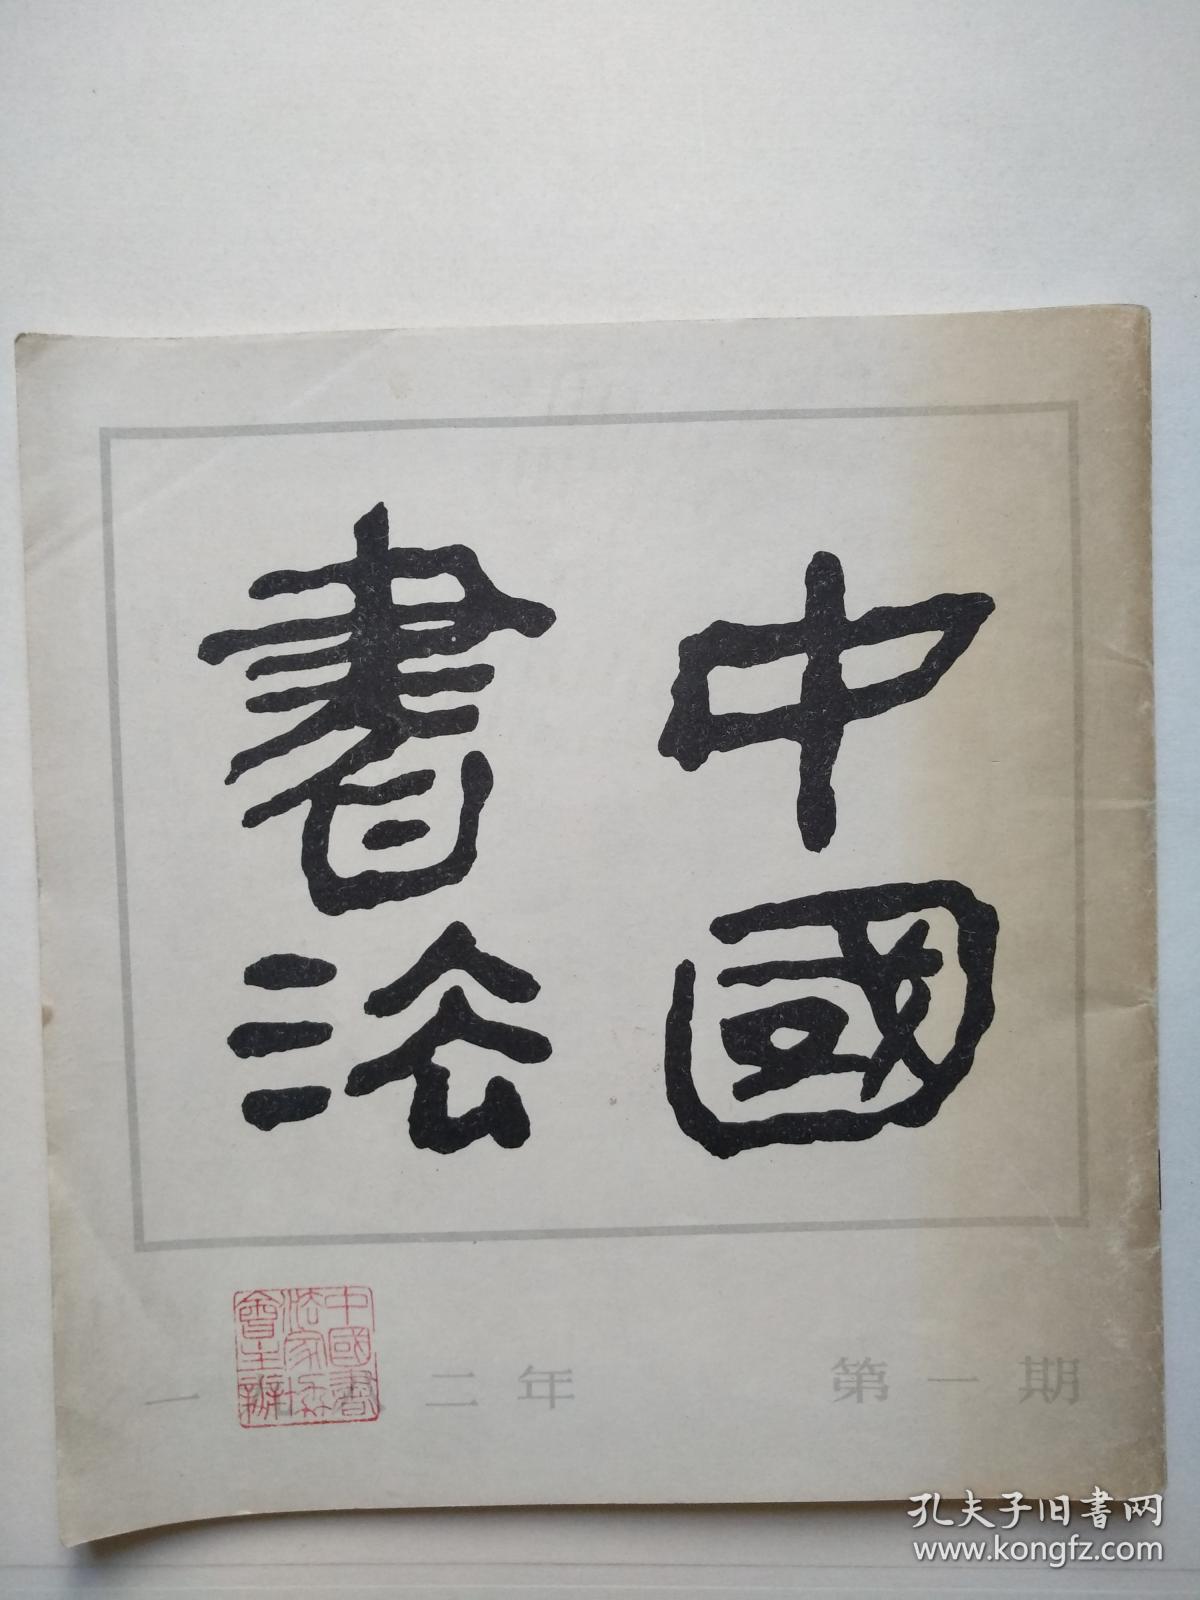 中國
書法
中國書
法家協
會主辦
一 二年 第一期
孔夫子旧书网
www.kongfz.com